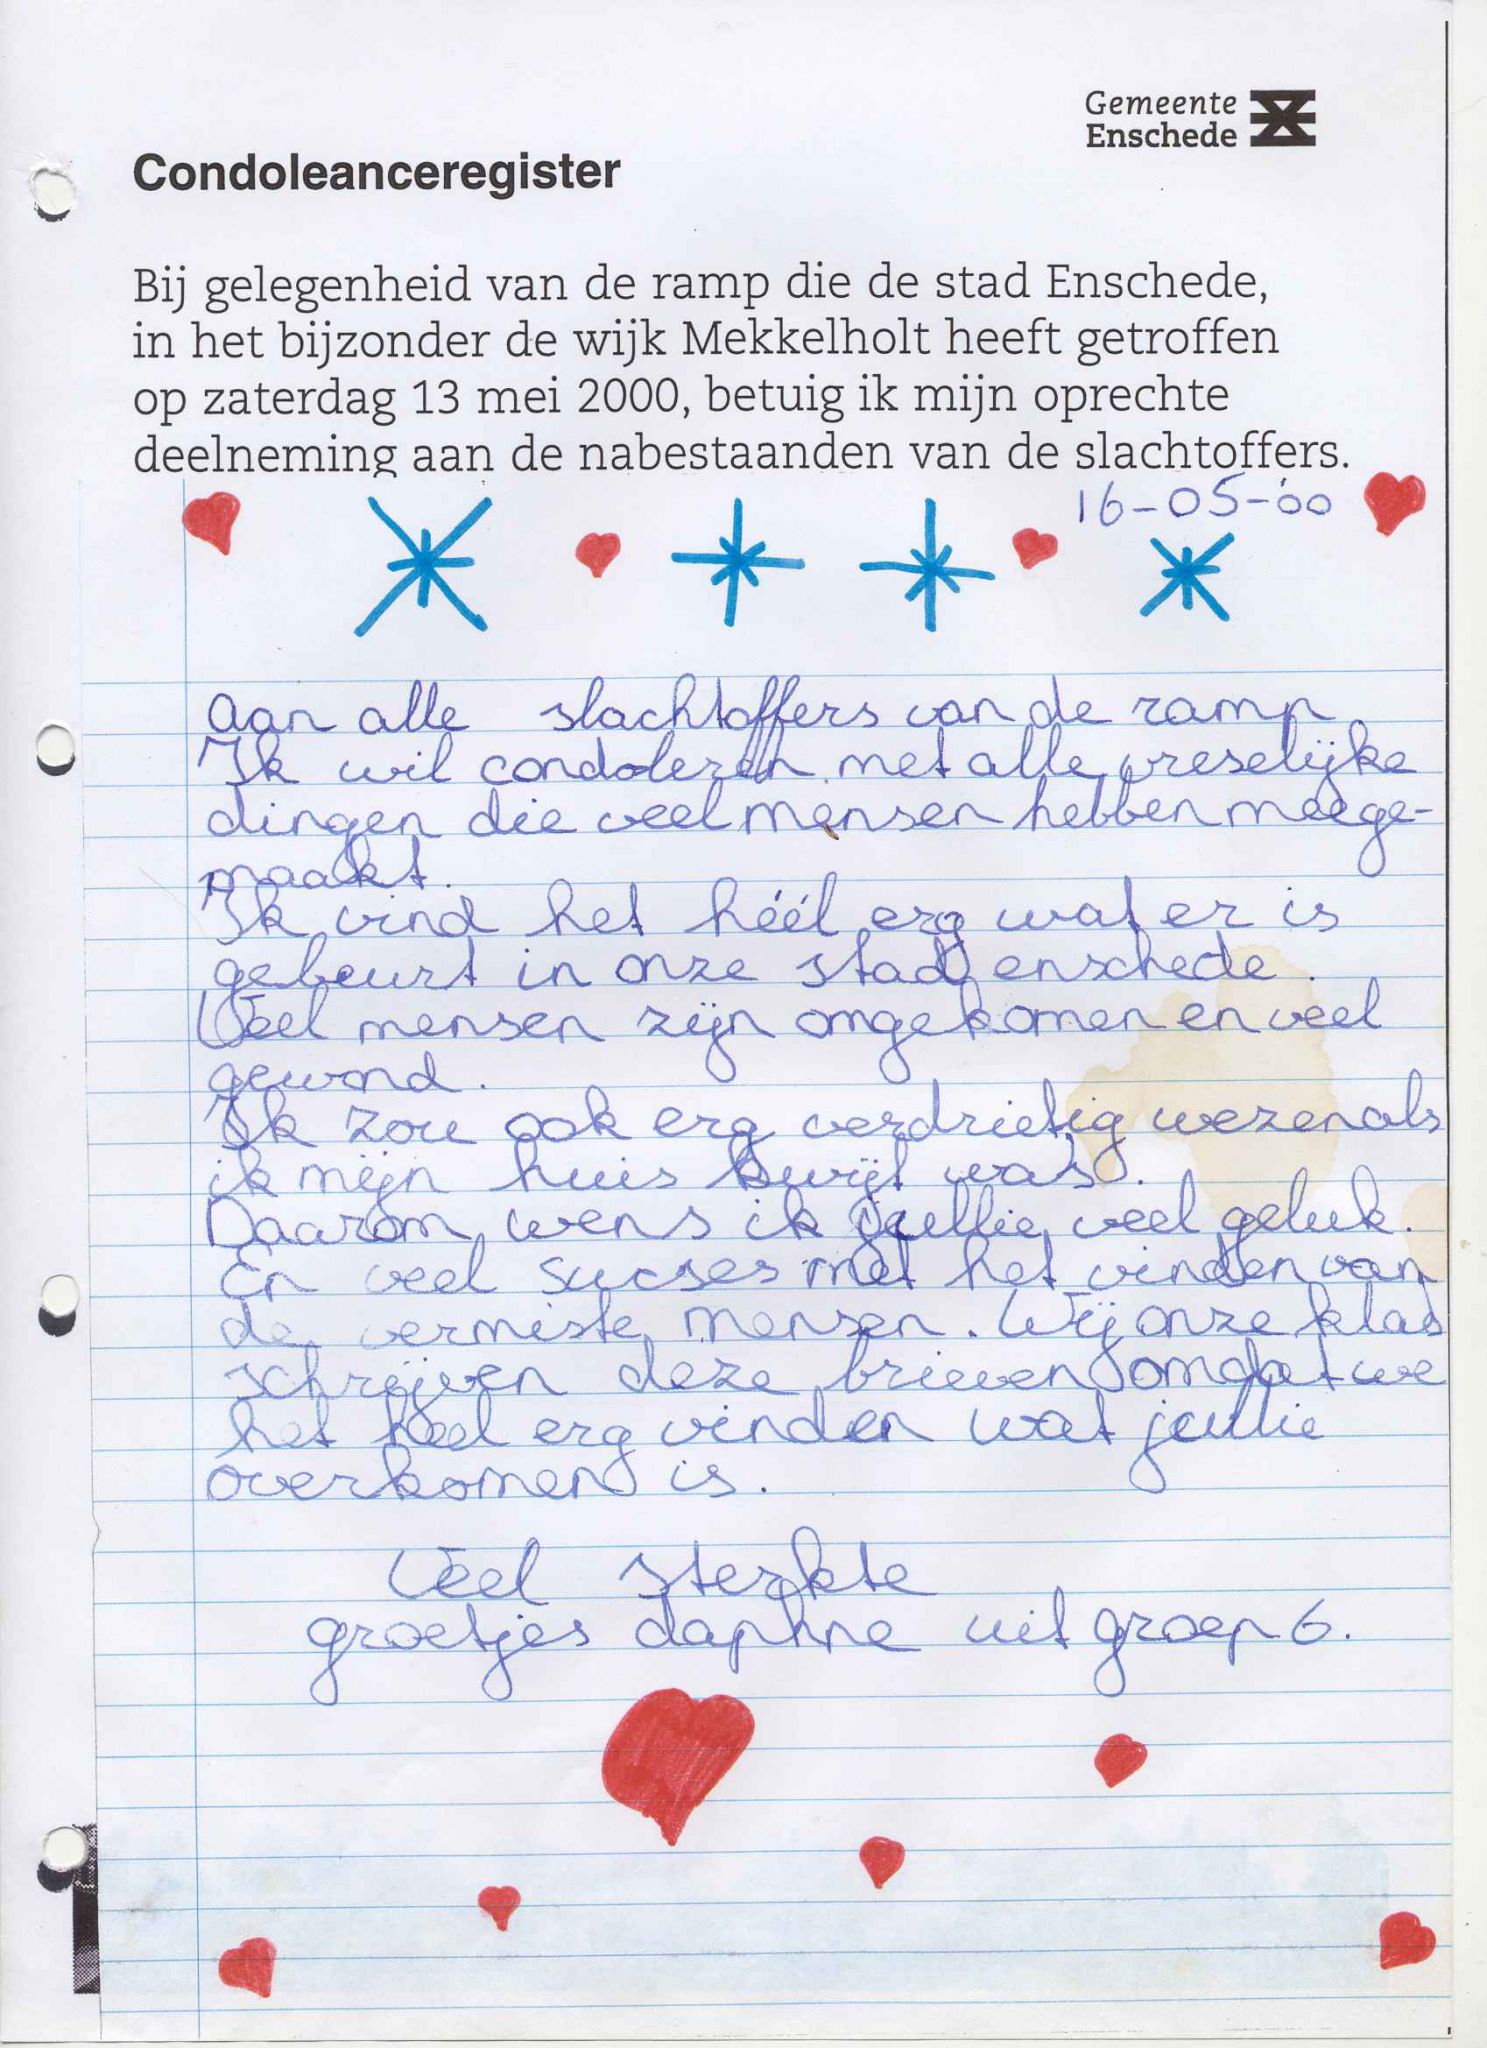 Gemeente
Enschede
Condoleanceregister
Bij gelegenheid van de ramp die de stad Enschede,
in het bijzonder de wijk Mekkelholt heeft getroffen
op zaterdag 13 mei 2000, betuig ik mijn oprechte
deelneming aan de nabestaanden van de slachtoffers.
16-05-'00
Aan alle slachtoffers van de ramp
Ik wil condoleren met alle vreselijke
dingen die veel mensen hebben meege-
maakt.
Ik vind het héél erg wat er is
gebeurt in onze stad enschede.
Veel mensen zijn omgekomen en veel
gewond.
Ik zou ook erg verdrietig wezen als
ik mijn huis kwijt was.
Daarom wens ik jullie veel geluk.
En veel sucses met het vinden van
de vermiste mensen. Wij onze klas
schrijven deze brieven omdat we
het heel erg vinden wat jullie
overkomen is.
Veel sterkte
groetjes daphne uit groep 6.